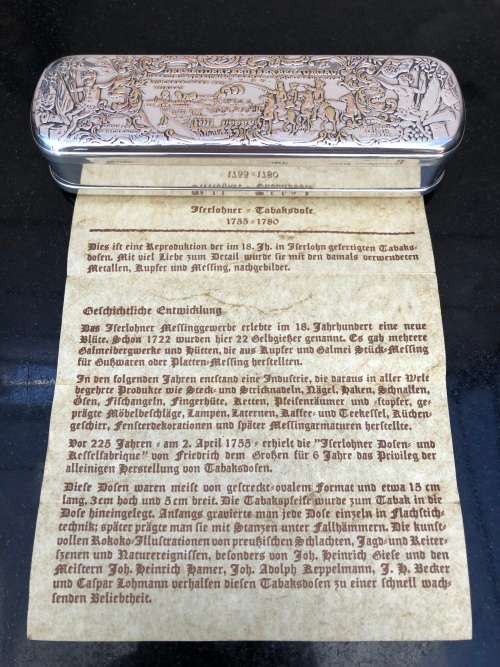 Iserlohner = Tabaksdose
1755 = 1780
Dies ist eine Reproduktion der im 18. Jh. in Iserlohn gefertigten Tabaks-
dosen. Mit viel Liebe zum Detail wurde sie mit den damals verwendeten
Metallen, Kupfer und Messing, nachgebildet.
Geschichtliche Entwicklung
Das Iserlohner Messinggewerbe erlebte im 18. Jahrhundert eine neue
Blüte. Schon 1722 wurden hier 22 Gelbgießer genannt. Es gab mehrere
Galmeibergwerke und Hütten, die aus Kupfer und Galmei Stück=Messing
für Gußwaren oder Platten=Messing herstellten.
In den folgenden Jahren entstand eine Industrie, die daraus in aller Welt
begehrte Produkte wie Steck= und Stricknadeln, Nägel, Haken, Schnallen,
Ösen, Fischangeln, Fingerhüte, Ketten, Pfeifenräumer und =stopfer, ge-
prägte Möbelbeschläge, Lampen, Laternen, Kaffee= und Teekessel, Küchen-
geschirr, Fensterdekorationen und später Messingarmaturen herstellte.
Vor 225 Jahren = am 2. April 1755 = erhielt die "Iserlohner Dosen= und
Kesselfabrique" von Friedrich dem Großen für 6 Jahre das Privileg der
alleinigen Herstellung von Tabaksdosen.
Diese Dosen waren meist von gestreckt=ovalem Format und etwa 15 cm
lang, 3 cm hoch und 5 cm breit. Die Tabakspfeife wurde zum Tabak in die
Dose hineingelegt. Anfangs gravierte man jede Dose einzeln in Flachstich-
technik; später prägte man sie mit Stanzen unter Fallhämmern. Die kunst-
vollen Rokoko=Illustrationen von preußischen Schlachten, Jagd= und Reiter-
szenen und Naturereignissen, besonders von Joh. Heinrich Giese und den
Meistern Joh. Heinrich Hamer, Joh. Adolph Keppelmann, J. H. Becker
und Caspar Lohmann verhalfen diesen Tabaksdosen zu einer schnell wach-
senden Beliebtheit.